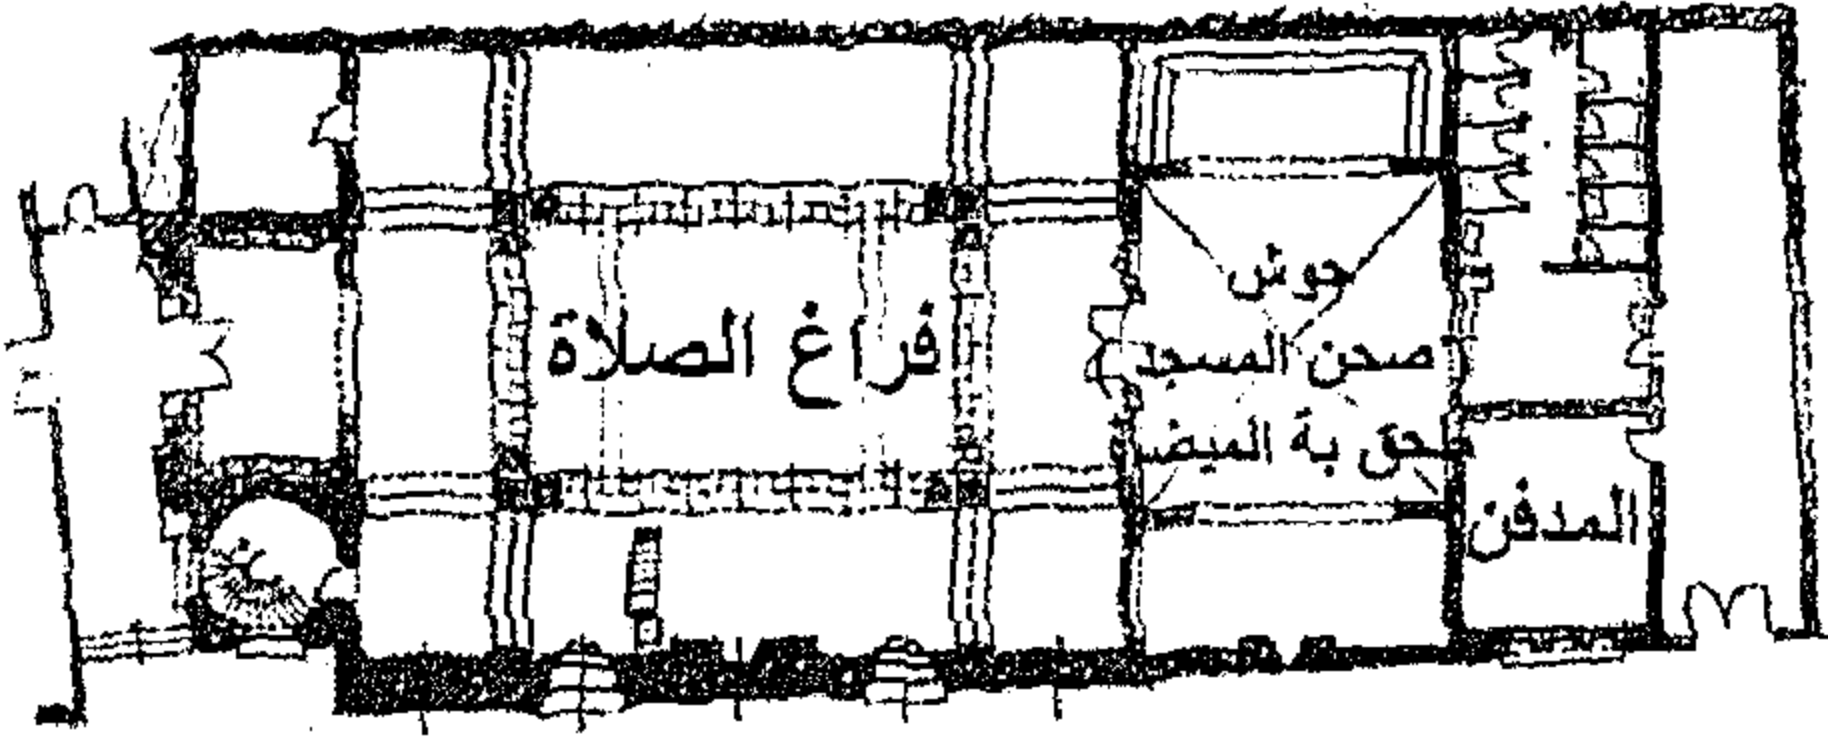 فراغ الصلاة
حوش
صحن المسجد
بة الميضـ
المدفن